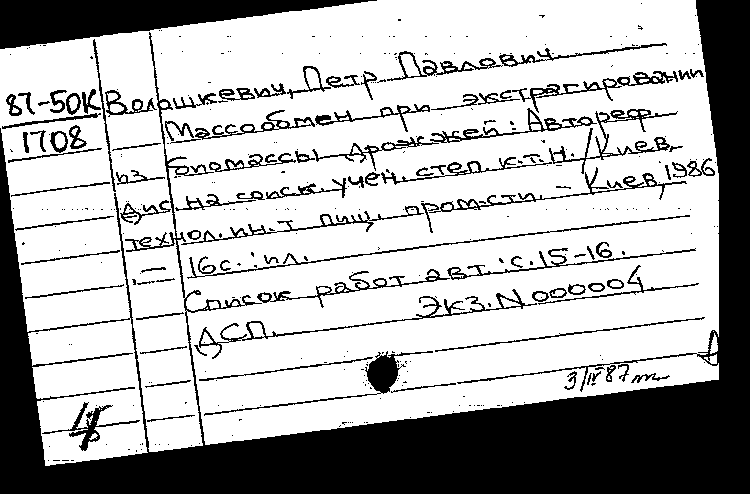 87-50К Волошкевич, Петр Павлович
1708 Массообмен при экстрагировании
из биомассы дрожжей: Автореф.
дис. на соиск. учен. степ. к.т.н. / Киев.
технол. ин-т пищ. пром-сти. - Киев, 1986
.— 16с. : ил.
Список работ авт.: с. 15-16.
ДСП. Экз. N 000004.
3/IV 87